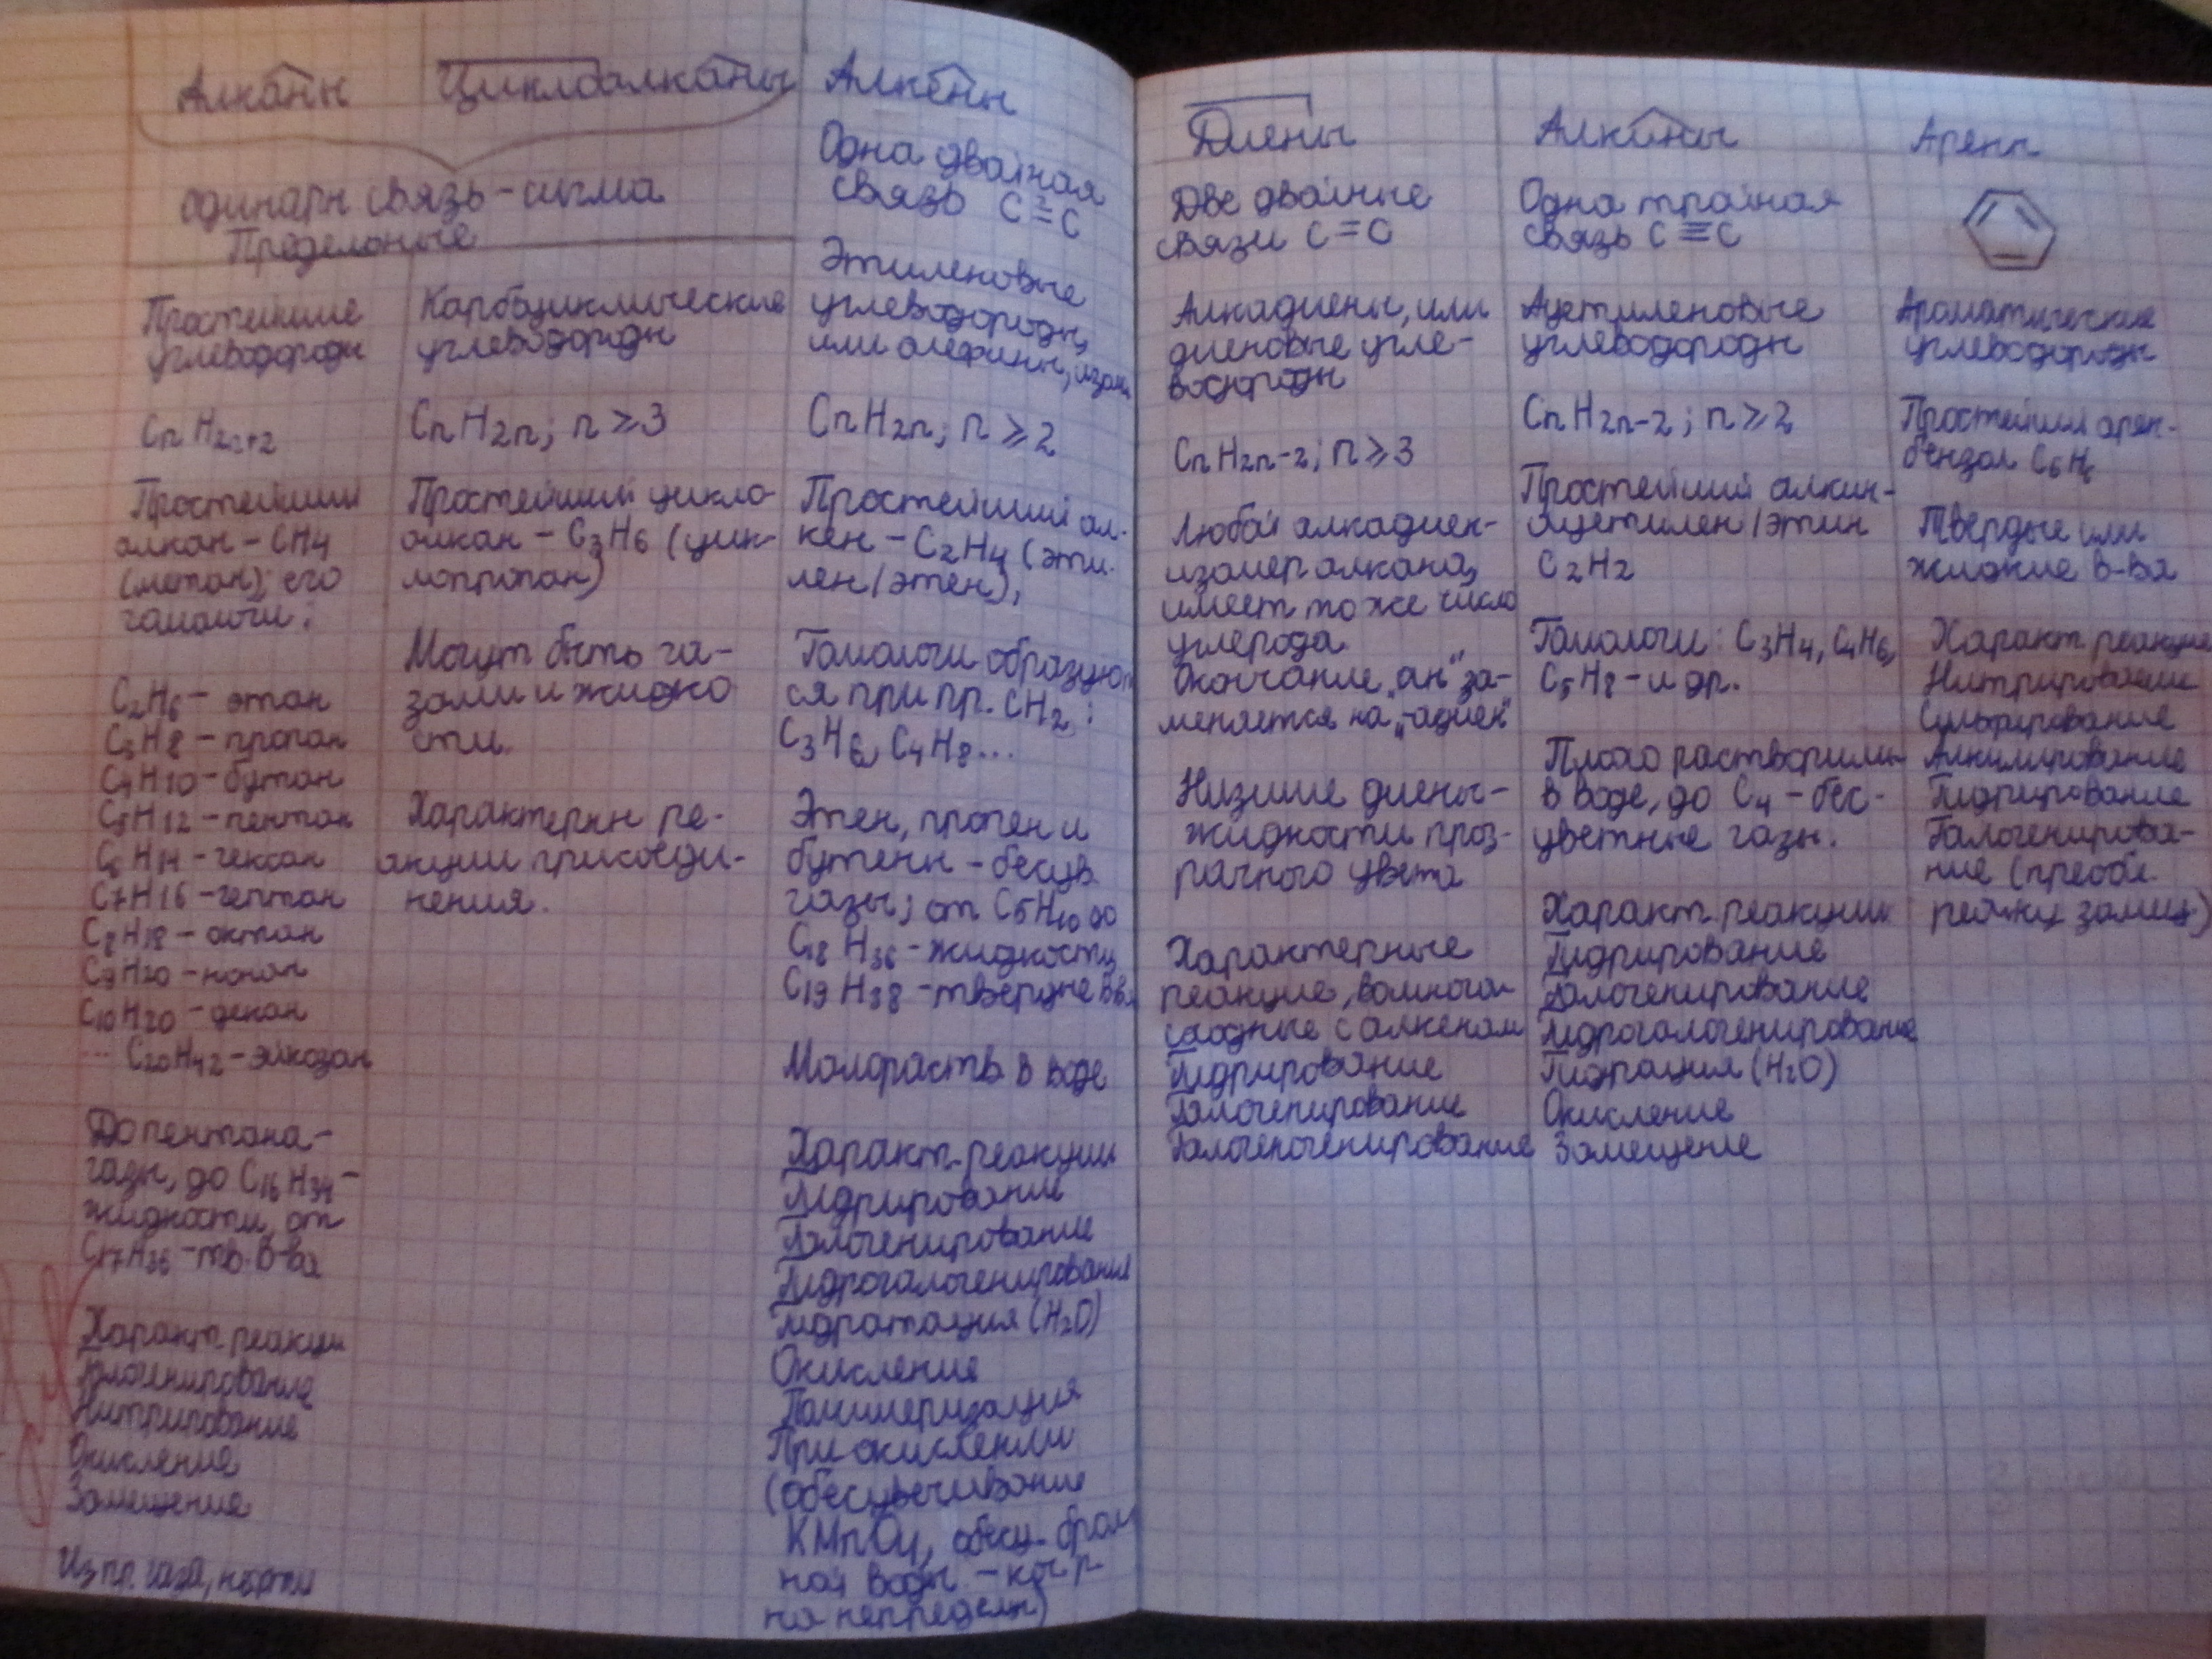 Алканы
Циклоалканы
одинарн связь - сигма
Предельные
Простейшие
углеводороды
CnH2n+2
Простейший
алкан - CH4
(метан); его
гомологи:
C2H6 - этан
C3H8 - пропан
C4H10 - бутан
C5H12 - пентан
C6H14 - гексан
C7H16 - гептан
C8H18 - октан
C9H20 - нонан
C10H20 - декан
... C20H42 - эйкозан
До пентана -
газы, до C16H34 -
жидкости, от
C17H36 - тв. в-ва
Характ. реакции
Галогенирование
Нитрирование
Окисление
Замещение
Из пр. газа, нефти
Карбоциклические
углеводороды
CnH2n; n ≥ 3
Простейший цикло-
алкан - C3H6 (цик-
лопропан)
Могут быть га-
зами и жидко
сти.
Характерны ре-
акции присоеди-
нения.
Алкены
Одна двойная
связь C = C
Этиленовые
углеводороды,
или олефины,
CnH2n; n ≥ 2
Простейший ал-
кен - C2H4 (эти-
лен/этен),
Гомологи образуют
ся при пр. CH2:
C3H6, C4H8...
Этен, пропен и
бутены - бесцв.
газы; от C5H10 до
C18H36 - жидкости,
C19H38 - твердые вва
Малораств. в воде
Характ. реакции
Гидрирование
Галогенирование
Гидрогалогенирование
Гидратация (H2O)
Окисление
Полимеризация
При окислении
(обесцвечивание
KMnO4, обесц. бром
ной воды - кач р-
на непредельн)
Диены
Две двойные
связи C = C
Алкадиены, или
диеновые угле-
водороды
CnH2n-2; n ≥ 3
Любой алкадиен -
изомер алкана,
имеет то же число
углерода
Окончание „ан" за-
меняется на „-адиен"
Низшие диены -
жидкости проз-
рачного цвета
Характерные
реакции, во многом
сходные с алкенами
Гидрирование
Галогенирование
Галогеногенирование
Алкины
Одна тройная
связь C ≡ C
Ацетиленовые
углеводороды
CnH2n-2; n ≥ 2
Простейший алкин -
ацетилен/этин
C2H2
Гомологи: C3H4, C4H6,
C5H8 - и др.
Плохо растворимы
в воде, до C4 - бес-
цветные газы.
Характ. реакции
Гидрирование
Галогенирование
Гидрогалогенирование
Гидрация (H2O)
Окисление
Замещение
Арены
Ароматические
углеводороды
Простейший арен -
бензол C6H6
Твердые или
жидкие в-ва
Характ. реакции
Нитрирование
Сульфирование
Алкилирование
Гидрирование
Галогенирова-
ние (преобл.
реакц замещ.)